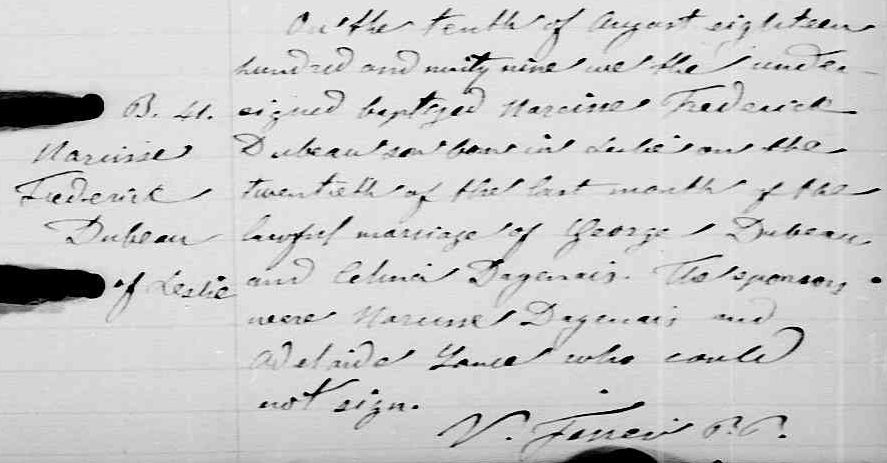 B. 41.
Narcisse
Frederick
Dubeau
of Leslie
On the tenth of August eighteen
hundred and ninty nine we the under-
signed baptized Narcisse Frederick
Dubeau son born in Leslie on the
twentieth of the last month of the
lawful marriage of George Dubeau
and Celina Dagenais. The sponsors
were Narcisse Dagenais and
Adelaide who could
not sign.
V. P.P.